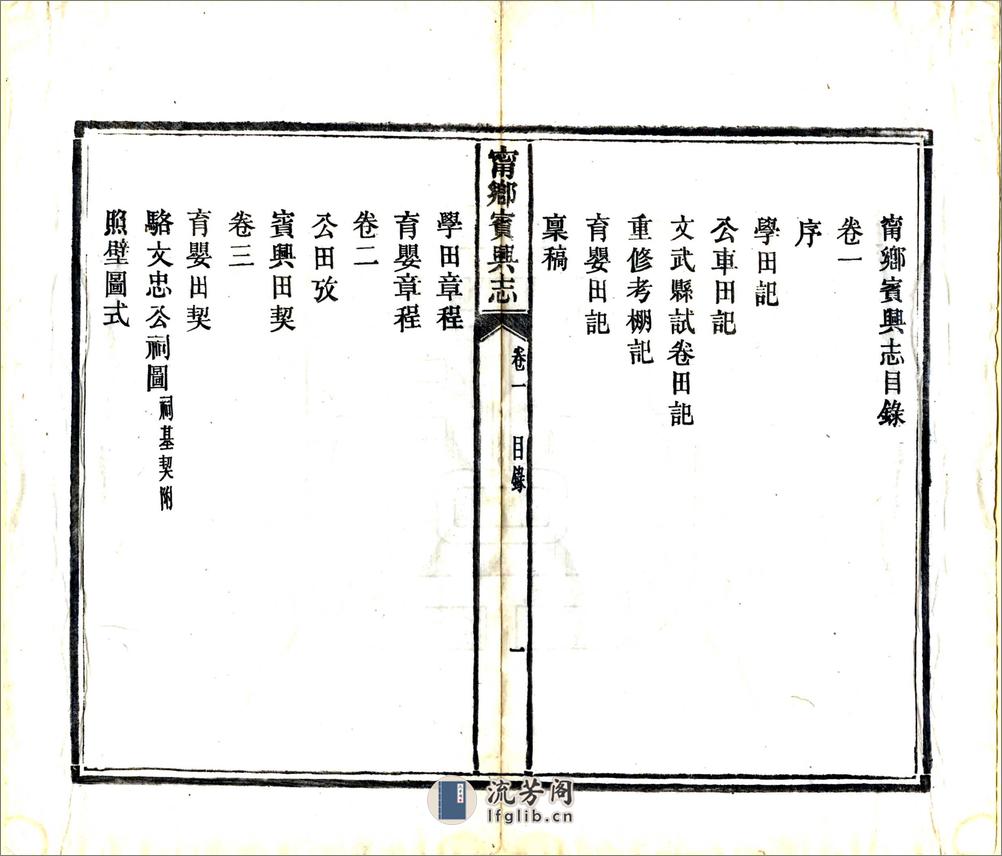 甯鄉賓興志目錄
卷一
序
學田記
公車田記
文武縣試卷田記
重修考棚記
育嬰田記
稟稿
甯鄉賓興志
卷一
目錄
一
學田章程
育嬰章程
卷二
公田攷
賓興田契
卷三
育嬰田契
駱文忠公祠圖祠基契附
照壁圖式
流芳阁
lfglib.cn